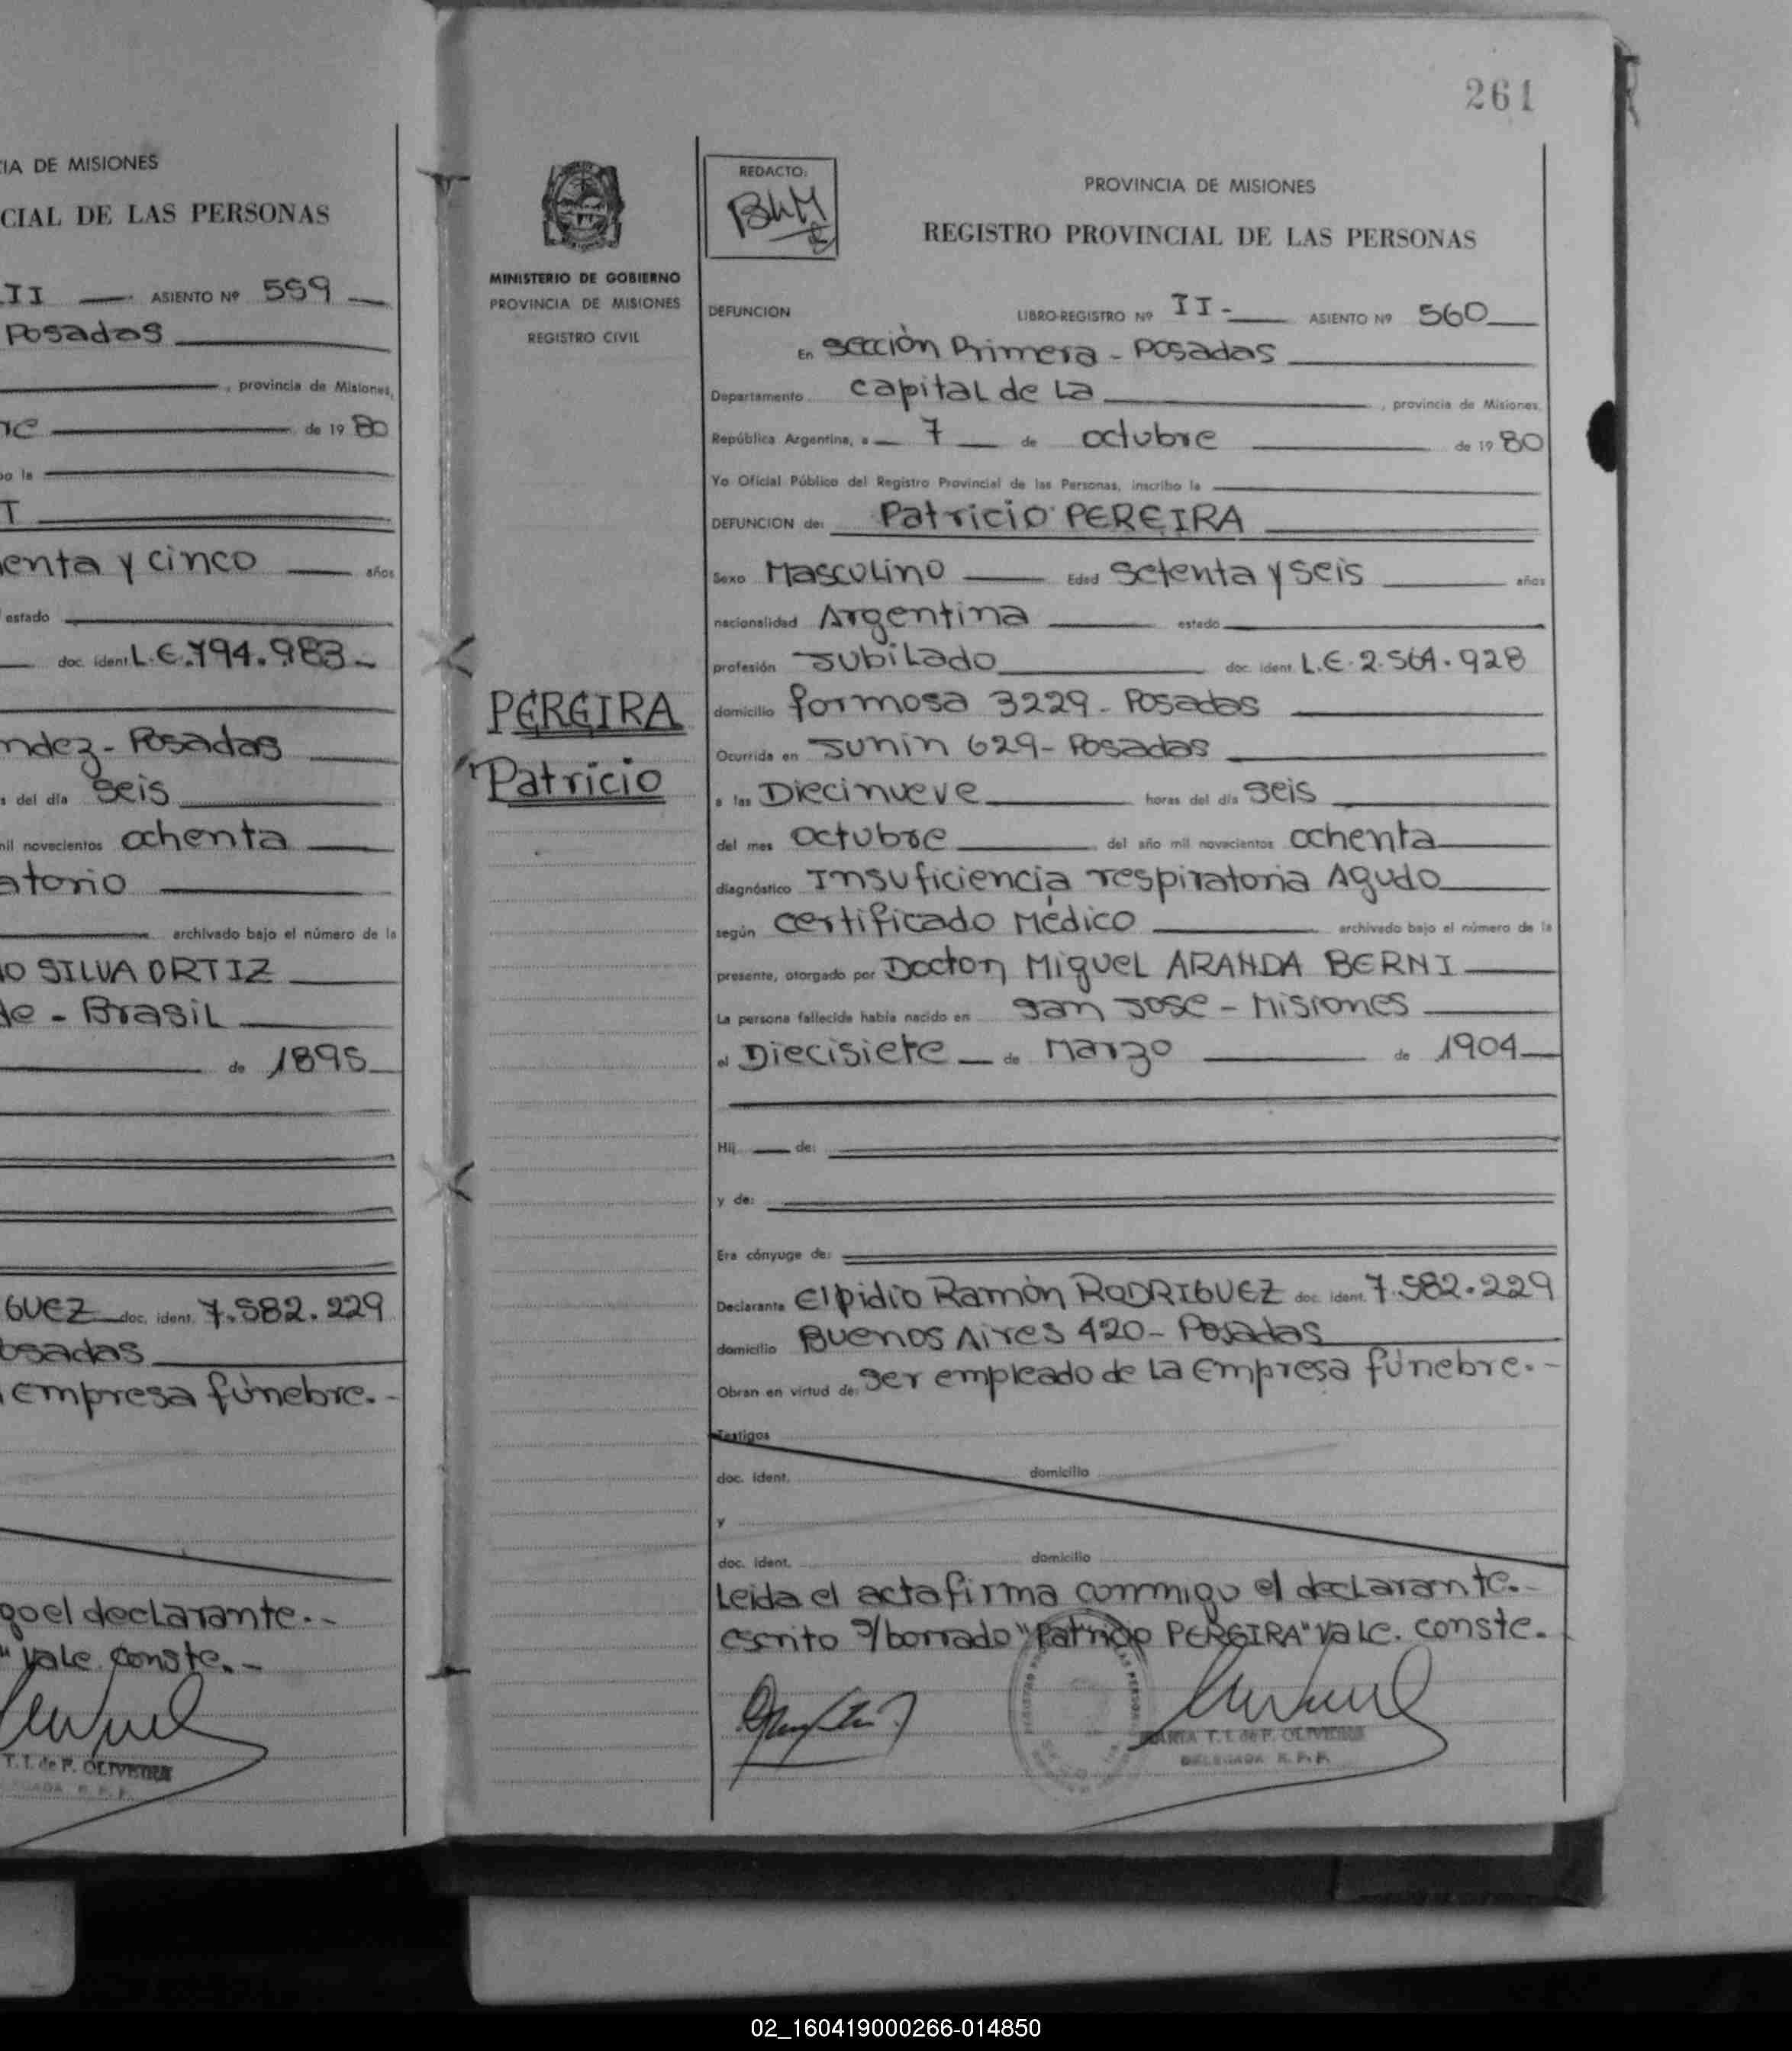 IA DE MISIONES
CIAL DE LAS PERSONAS
II ASIENTO Nº 559
Posadas
, provincia de Misiones,
de 19 80
bo la
T
enta y cinco años
estado
doc. ident. L.E. 794.983.-
ndez - Posadas
s del día seis
mil novecientos ochenta
atorio
archivado bajo el número de la
IO SILVA ORTIZ
de - Brasil
de 1895
GUEZ doc. ident. 7.582.229
osadas
empresa fúnebre.-
go el declarante.-
" vale conste.-
T. I. de P. OLIVEIRA
261
MINISTERIO DE GOBIERNO
PROVINCIA DE MISIONES
REGISTRO CIVIL
PEREIRA
Patricio
REDACTO:
PROVINCIA DE MISIONES
REGISTRO PROVINCIAL DE LAS PERSONAS
DEFUNCION LIBRO-REGISTRO Nº II - ASIENTO Nº 560
En sección Primera - Posadas
Departamento capital de La , provincia de Misiones,
República Argentina, a 7 de octubre de 19 80
Yo Oficial Público del Registro Provincial de las Personas, inscribo la
DEFUNCION de: Patricio PEREIRA
Sexo Masculino Edad Setenta y seis años
nacionalidad Argentina estado
profesión Jubilado doc. ident. L.E. 2.564.928
domicilio formosa 3229 - Posadas
Ocurrida en Junin 629 - Posadas
a las Diecinueve horas del día seis
del mes octubre del año mil novecientos ochenta
diagnóstico Insuficiencia respiratoria Agudo
según certificado Médico archivado bajo el número de la
presente, otorgado por Doctor Miguel ARANDA BERNI
La persona fallecida había nacido en San Jose - Misiones
el Diecisiete de Marzo de 1904
Hij de:
y de:
Era cónyuge de:
Declarante Elpidio Ramón RODRIGUEZ doc. ident. 7.582.229
domicilio Buenos Aires 420 - Posadas
Obran en virtud de: ser empleado de la Empresa fúnebre.-
Testigos
doc. ident. domicilio
y
doc. ident. domicilio
Leida el acta firma conmigo el declarante.-
escrito s/borrado "Patricio PEREIRA" vale. conste.
MARIA T. I. de P. OLIVEIRA
DELEGADA R. P. P.
02_160419000266-014850